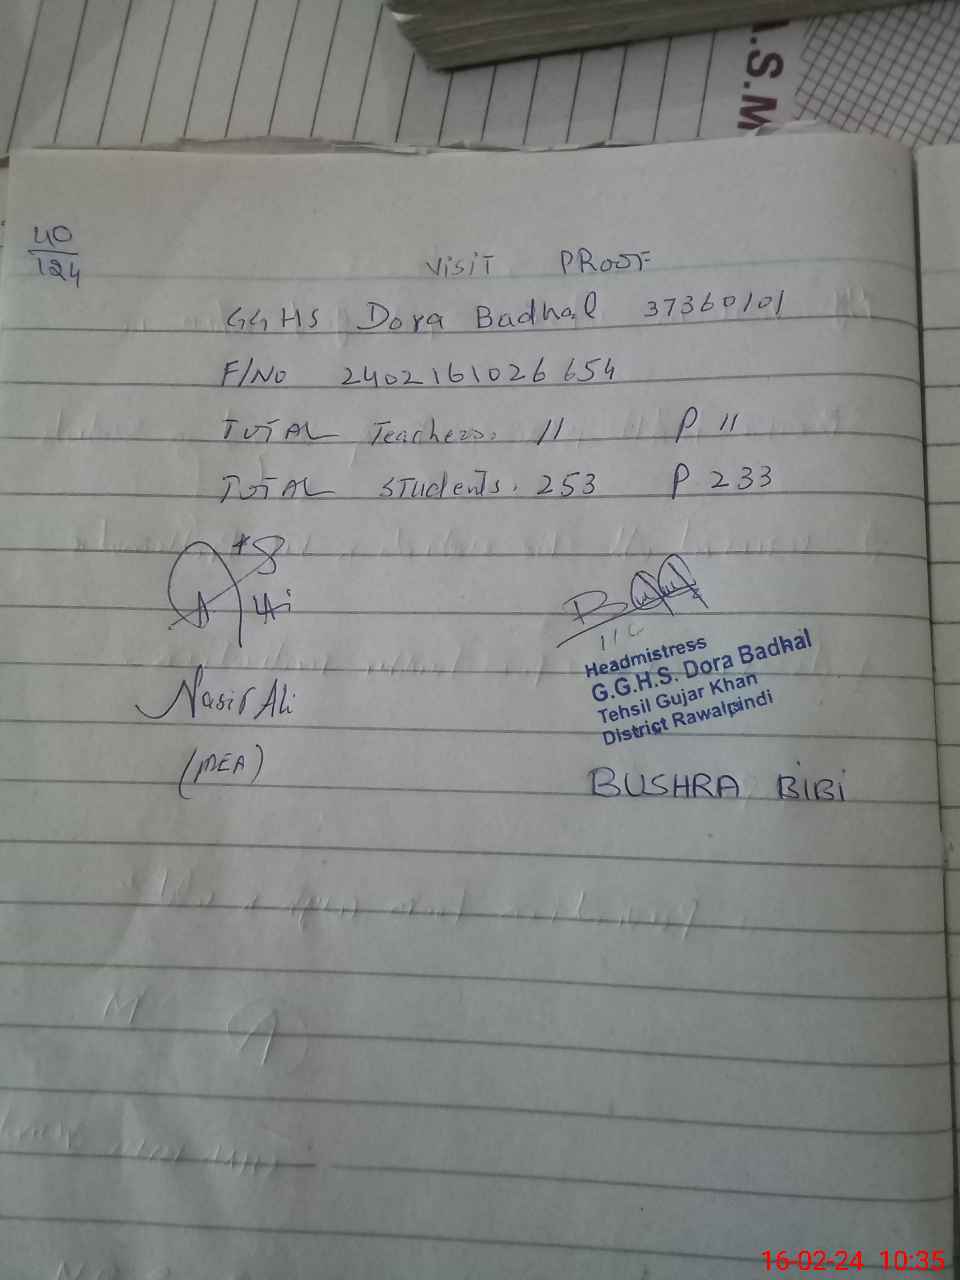 A.S.M
40
124
VISIT PROOF
GGHS Dora Badhal 37360101
F/No 2402161026654
TOTAL Teachers. 11 P 11
TOTAL Students. 253 P 233
Nasir Ali
(MEA)
Headmistress
G.G.H.S. Dora Badhal
Tehsil Gujar Khan
District Rawalpindi
BUSHRA BIBI
16-02-24 10:35